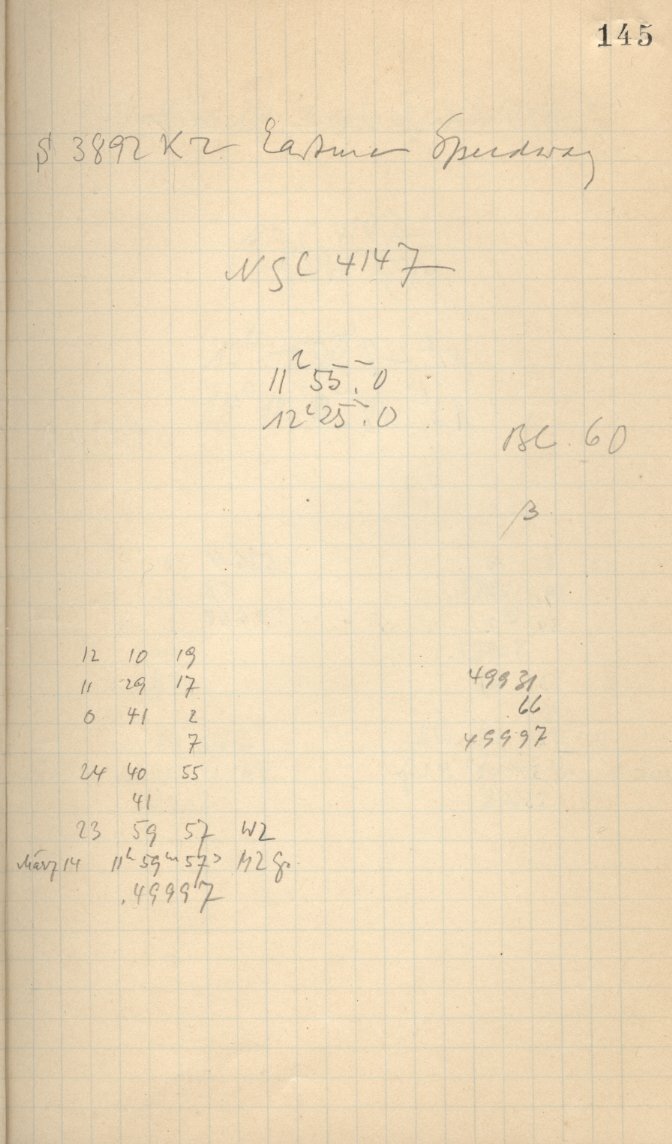 145
3892 K2 Eastman Speedway
NGC 4147
11h 55.0
12h 25.0
BC 60
β
12 10 19
11 29 17
0 41 2
7
24 40 55
41
23 59 57 WZ
März 14 11h 59m 57s MZGr.
.49997
49931
66
49997